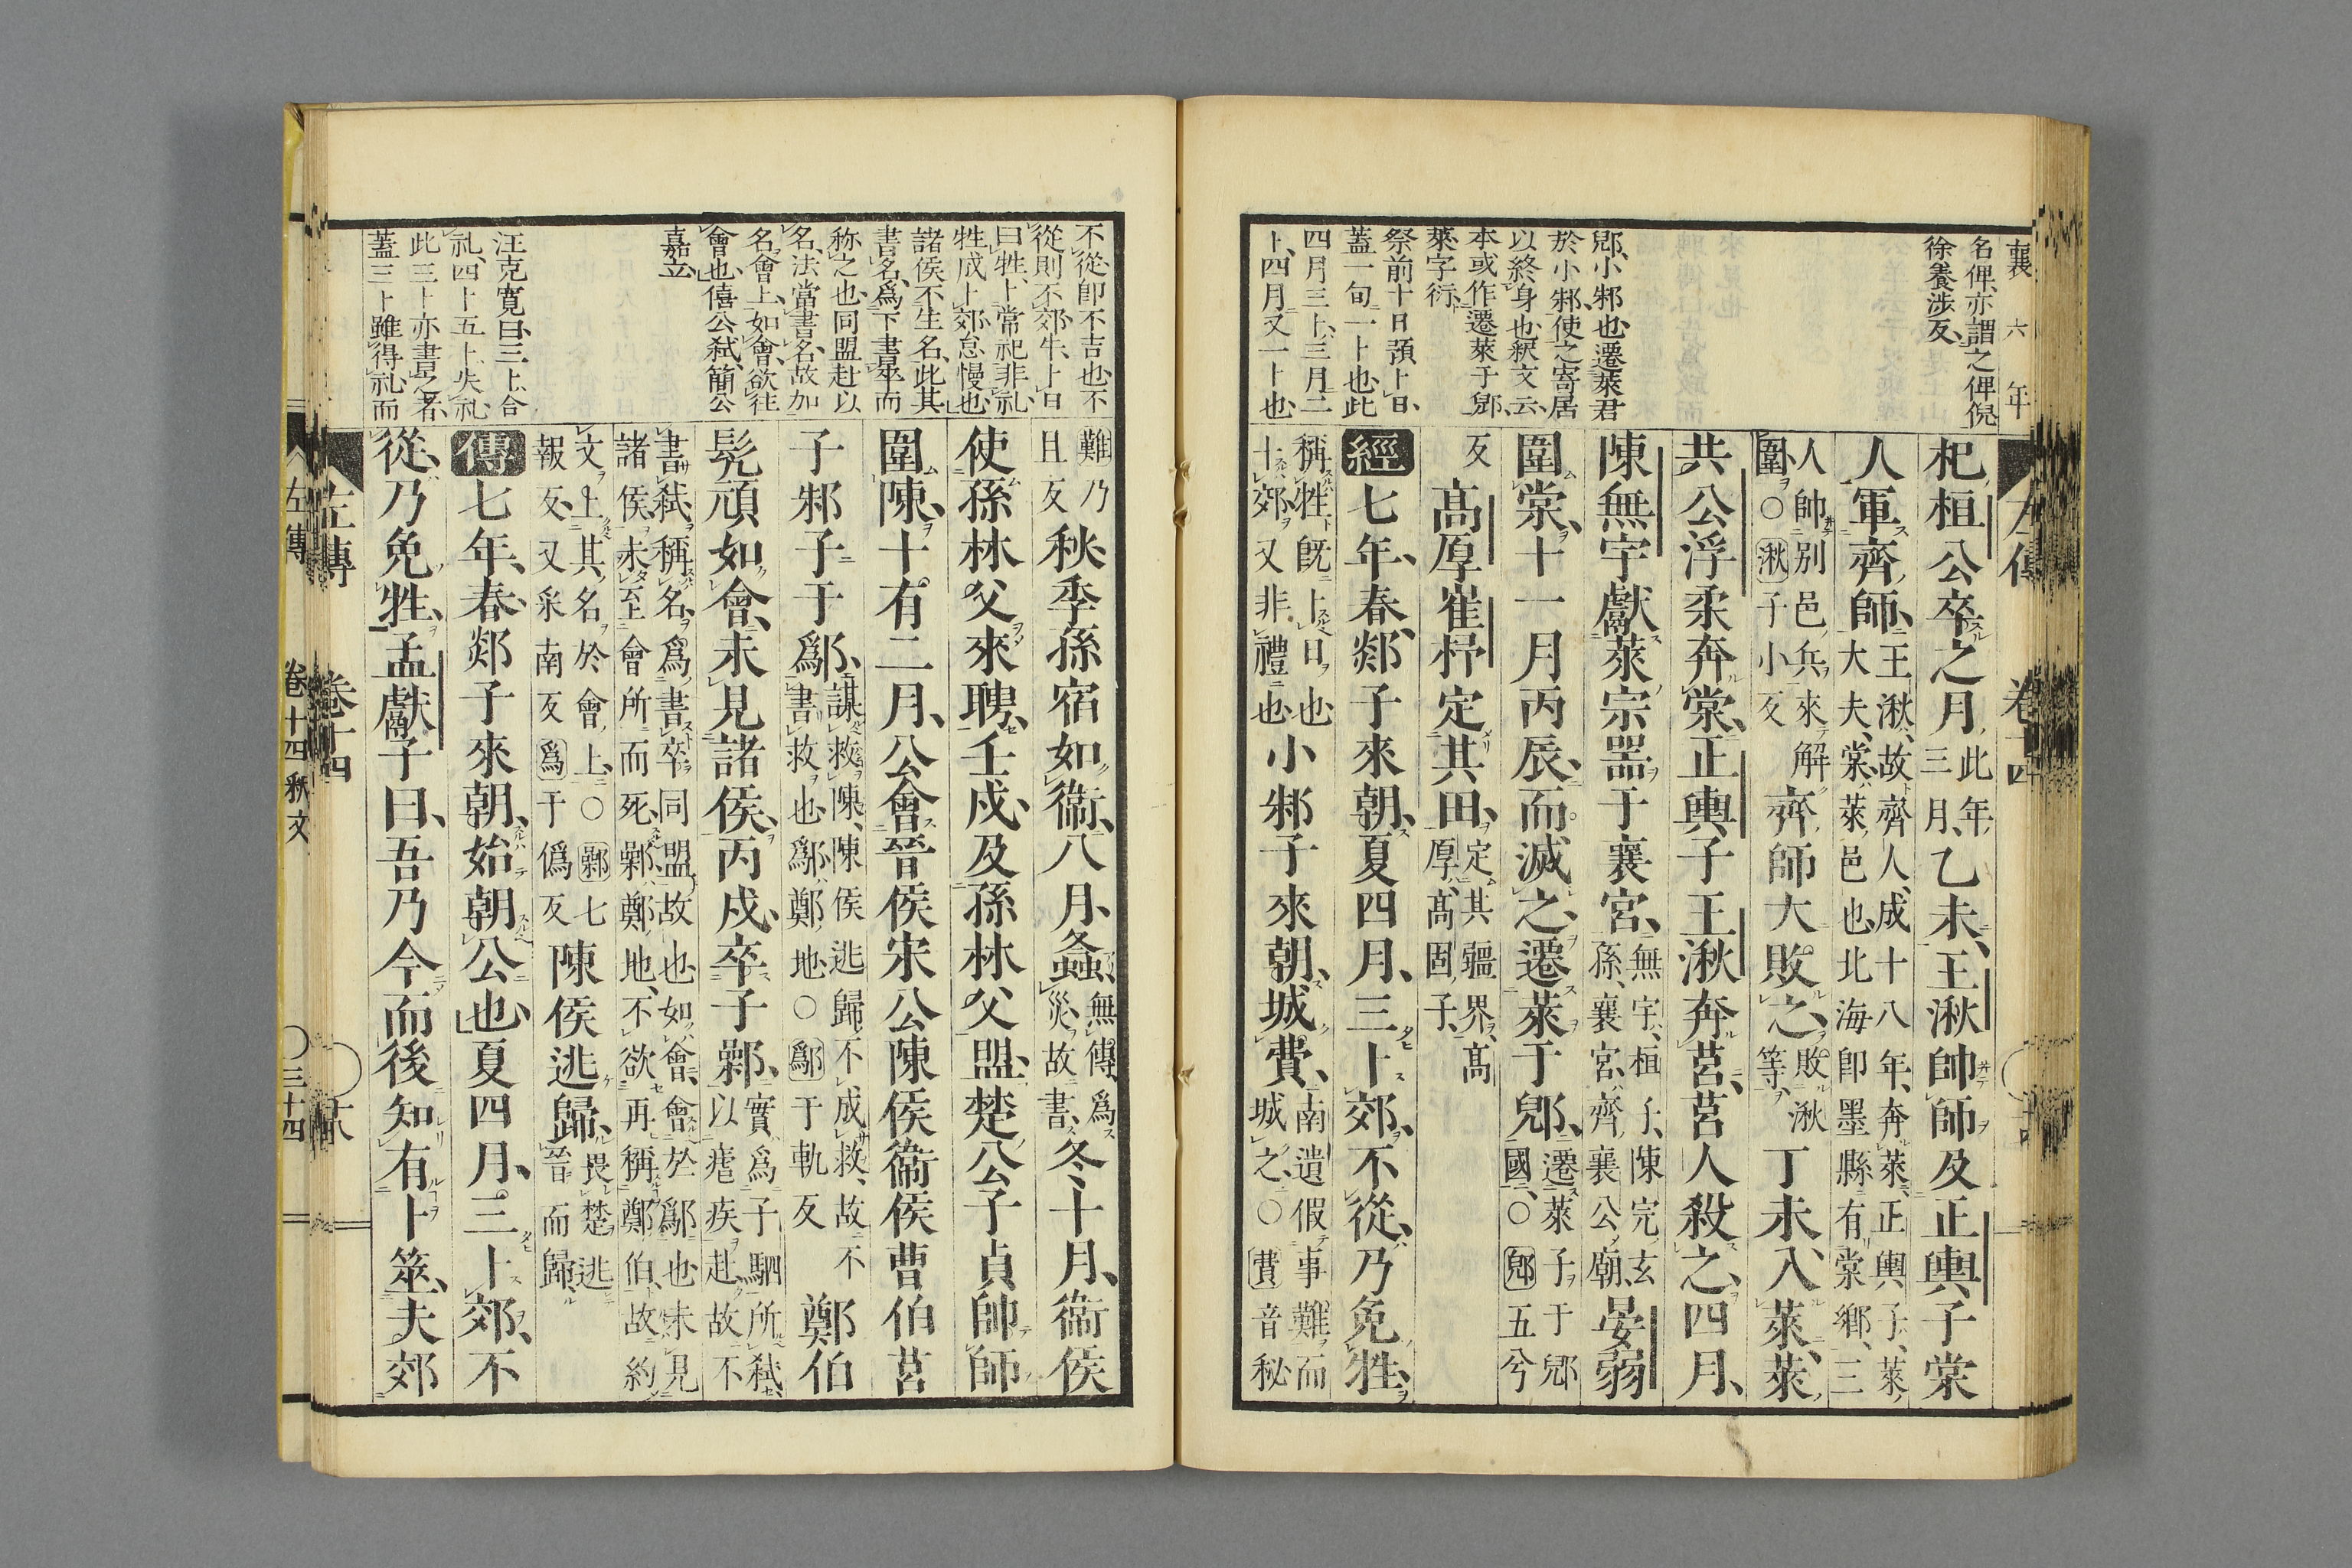 襄 六 年
名俾、亦謂之俾倪
徐養涉反、
郳、小邾也、遷萊君
於小邾、使之寄居
以終身也、釈文云、
本或作遷萊于郳、
萊字衍、
祭前十日預卜日、
蓋一旬一卜也、此
四月三卜、三月二
卜、四月又一卜也、
左傳 卷十四
杞桓公卒之月、此年
三月、乙未、王湫帥師及正輿子棠
人軍齊師、王湫、故齊人、成十八年、奔萊、正輿子、萊
大夫、棠、萊邑也、北海卽墨縣有棠鄉、三
人帥別邑兵來解
圍、○湫子小反
齊師大敗之、敗湫
等、
丁未入萊、萊
共公浮柔奔棠、正輿子王湫奔莒、莒人殺之、四月、
陳無宇獻萊宗噐于襄宮、無宇、桓子、陳完玄
孫、襄宮、齊襄公廟、
晏弱
圍棠、十一月丙辰、而滅之、遷萊于郳、遷萊子于郳
國、○郳五兮
反
高厚崔杼定其田、定其疆界、高
厚、高固子、
經七年、春、郯子來朝、夏四月、三卜郊、不從、乃免牲、
稱牲、旣卜日也、
卜郊又非禮也、
小邾子來朝、城費、南遺假事難而
城之、○費音秘
不從、卽不吉也、不
從則不郊、牛、卜日
曰牲、卜常祀非礼、
牲成卜郊怠慢也、
諸侯不生名、此其
書名、爲下書卒而
称之也、同盟赴以
名、法當書名、故加
名會上、如會、欲往
會也、僖公弒、簡公
嘉立、
汪克寬曰、三卜、合
礼、四卜五卜、失礼、
此三卜亦書之者、
蓋三卜雖得礼、而
難乃
且反
秋、季孫宿如衞、八月、螽、無傳、爲
災、故書、
冬十月、衞侯
使孫林父來聘、壬戌、及孫林父盟、楚公子貞帥師
圍陳、十有二月、公會晉侯宋公陳侯衞侯曹伯莒
子邾子于鄬、謀救陳、陳侯逃歸、不成救、故不
書救也、鄬、鄭地、○鄬于軌反
鄭伯
髡頑如會、未見諸侯、丙戌、卒子鄵、實爲子駟所弒、
以瘧疾赴、故不
書弒、稱名、爲書卒、同盟故也、如會、會於鄬也、未見
諸侯、未至會所而死、鄵、鄭地、不欲再稱鄭伯、故約
文上其名於會上、○鄵七
報反、又采南反、爲于僞反
陳侯逃歸、畏楚逃
晉而歸、
傳七年、春、郯子來朝、始朝公也、夏四月、三卜郊、不
從、乃免牲、孟獻子曰、吾乃今而後知有卜筮、夫郊
左傳 卷十四
左傳 卷十四釈文 ○三十四